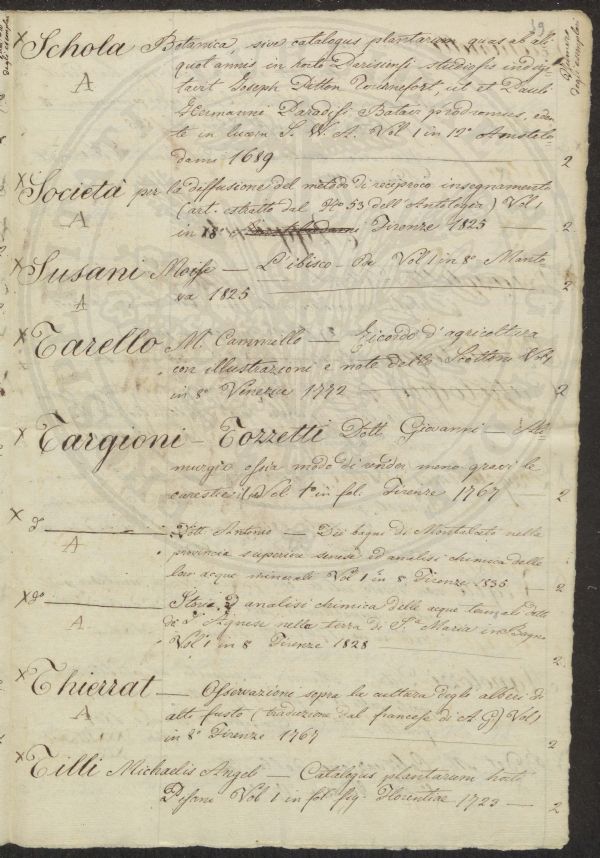 39
Numero
degli esemplari
x Schola Botanica, sive catalogus plantarum quas ab ali
A quot annis in horto Parisiensi studiosis indigi
tavit Joseph Pitton Tournefort, ut et Pauli
Hermanni Paradisi Batavi prodromus, eden
te in lucem S. W. A. Vol 1 in 12° Amstelo
dami 1689 2
x Società per la diffusione del metodo di reciproco insegnamento
A (art. estratto dal N° 53 dell'Antologia) Vol 1
in 18° Firenze 1825 — 2
x Susani Moise — L'ibisco Vol 1 in 8° Manto
A va 1825 2
x Tarello M. Cammillo — Ricordo d'agricoltura
con illustrazioni e note dello Scottoni Vol 1
in 8° Venezia 1772 2
x Targioni - Tozzetti Dott. Giovanni — Ali
murgia ossia modo di render meno gravi le
carestie Vol 1° in fol. Firenze 1767 — 2
x d° — Dott. Antonio — Dei bagni di Montalceto nella
A provincia superiore senese ed analisi chimica delle
loro acque minerali Vol 1 in 8 Firenze 1835 — 2
x d° — Storia ed analisi chimica delle acque termali dette
A di S. Agnese nella terra di S.ta Maria in Bagno
Vol 1 in 8 Firenze 1828 — 2
x Thierrat — Osservazione sopra la cultura degli alberi di
A alto fusto (traduzione dal francese di A G) Vol 1
in 8° Firenze 1767 2
x Tilli Michaelis Angeli — Catalogus plantarum horti
Pisani Vol 1 in fol fig. Florentiae 1723 — 2